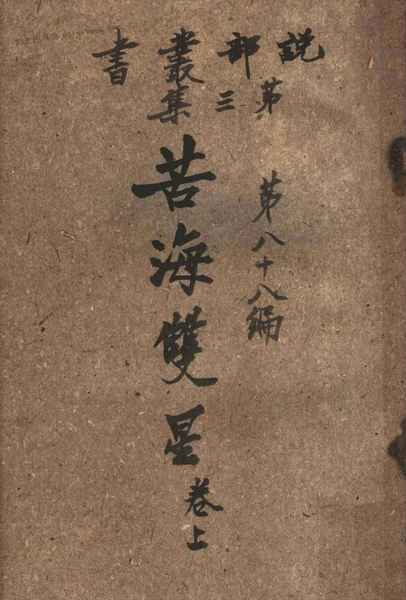 說部叢書
第三集
第八十八編
苦海雙星
卷上